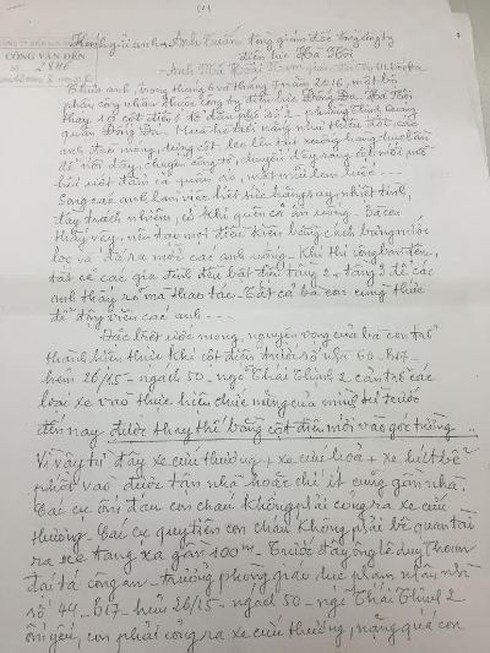 (1)
Kính gửi anh Anh Tuấn tổng giám đốc tổng công ty
điện lực Hà Nội
CÔNG VĂN ĐẾN
Anh Mã Hoài Nam giám đốc
Thưa anh, trong tháng 6 và tháng 7 năm 2016, một bộ
phận công nhân thuộc công ty điện lực Đống Đa Hà Nội
thay 10 cột điện ở tổ dân phố số 2 - phường Thịnh Quang
quận Đống Đa. Mùa hè trời nắng như thiêu đốt, các
anh đào móng, dựng cột, leo lên tụt xuống hàng chục lần
để nối dây, chuyển công tơ, chuyển dây sang cột mới mồ
hôi ướt đầm cả quần áo, mặt mũi lem luốc ...
Song các anh làm việc hết sức hăng say, nhiệt tình,
đầy trách nhiệm, có khi quên cả ăn uống. Bà con
thấy vậy, nên tạo mọi điều kiện bằng cách bằng nước
lọc và đá ra mời các anh uống. Khi thi công ban đêm,
tất cả các gia đình đều bật điện tầng 2, tầng 3 để các
anh thấy rõ mà thao tác. Tất cả bà con cùng thức
để động viên các anh ...
Đặc biệt ước mong, nguyện vọng của bà con trở
thành hiện thực khi cột điện trước số nhà 60 - B17 -
hẻm 26/15 - ngách 50 - ngõ Thái Thịnh 2 cản trở các
loại xe vào thực hiện chức năng của mình từ trước
đến nay được thay thế bằng cột điện mới vào góc tường ..
Vì vậy từ đây xe cứu thương + xe cứu hoả + xe hút bể
phốt vào được tận nhà hoặc chí ít cũng gần nhà.
Các cụ ốm đau con cháu không phải cõng ra xe cứu
thương. Các cụ quy tiên con cháu không phải bê quan tài
ra xe tang xa gần 100m. Trước đây ông Lê duy Thoan
đại tá công an - trưởng phòng giáo dục phạm nhân nhà
số 44 - B17 - hẻm 26/15 - ngách 50 - ngõ Thái Thịnh 2
ốm yếu, con phải cõng ra xe cứu thương, nặng quá con